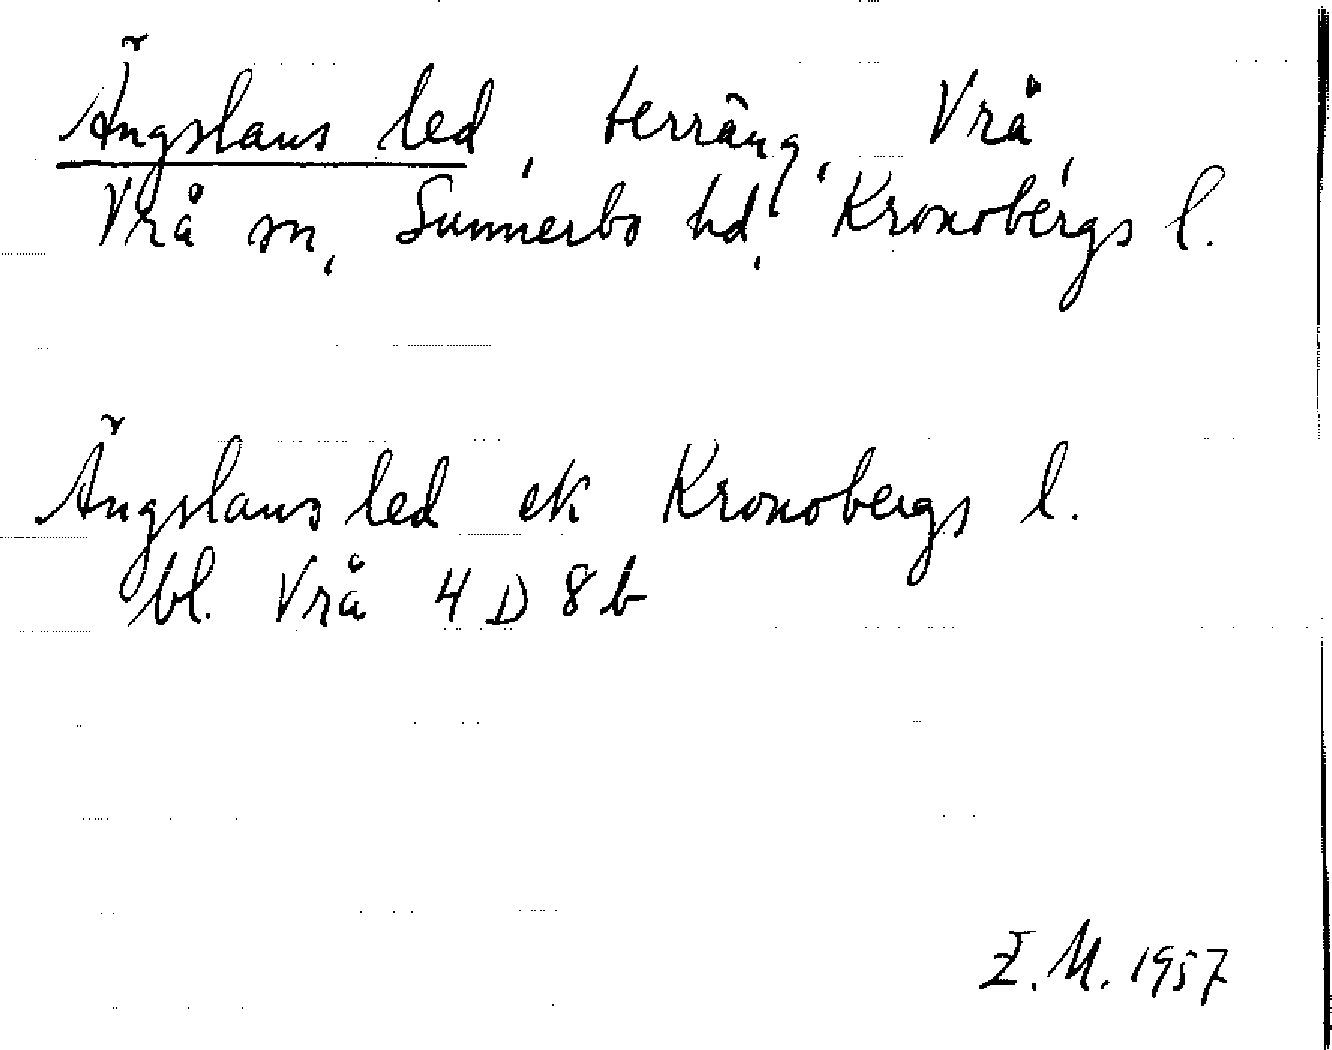 Ängslaus led, terräng, Vrå,
Vrå sn, Sunnerbo hd, Kronobergs l.
Ängslaus led ek Kronobergs l.
bl. Vrå 4 D 8 b
E. M. 1957